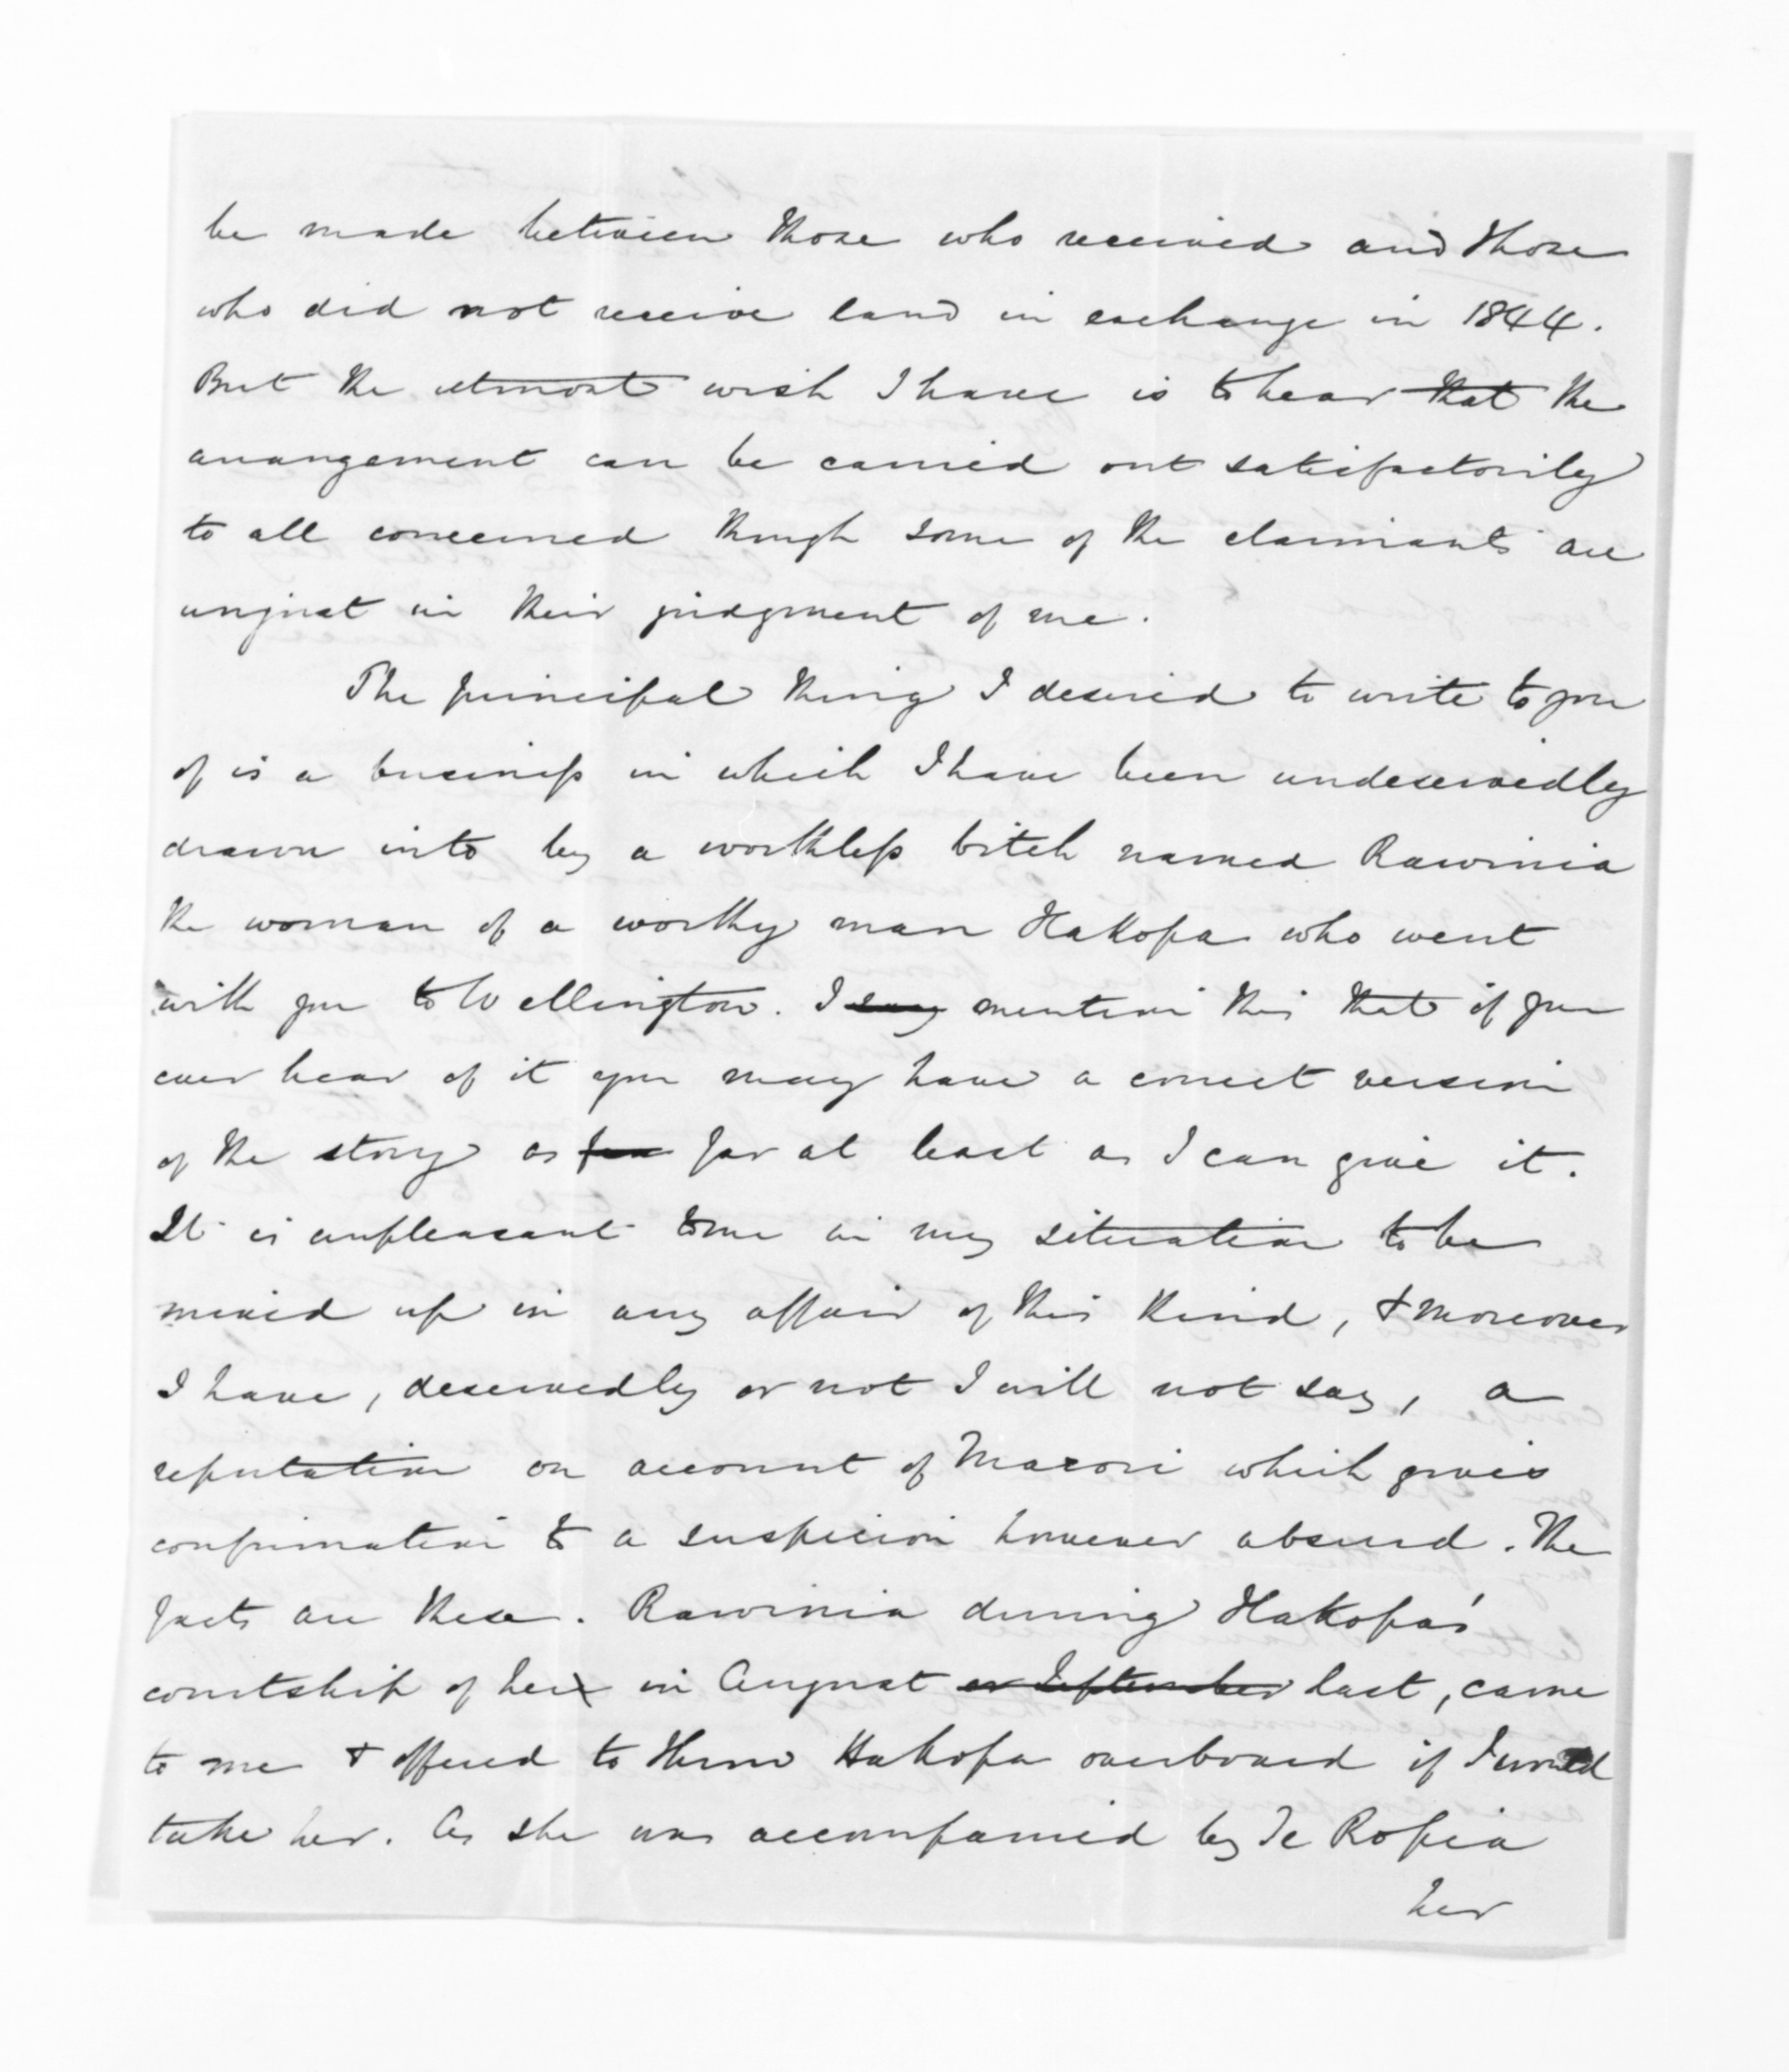 be made between those who received and those
who did not receive land in exchange in 1844.
But the utmost wish I have is to hear that the
arrangement can be carried out satisfactorily
to all concerned though some of the claimants are
unjust in their judgment of me.
The principal thing I desired to write to you
of is a business in which I have been undeservedly
drawn into by a worthless bitch named Rawinia
the woman of a worthy man Hakopa who went
with you to Wellington. I say mention this that if you
ever hear of it you may have a correct version
of the story as far at least as I can give it.
It is unpleasant to me in my situation to be
mixed up in any affair of this kind, & moreover
I have, deservedly or not I will not say, a
reputation on account of Maeori which gives
confirmation to a suspicion however absurd. The
facts are these. Rawinia during Hakopa's
courtship of her in August or September last, came
to me & offered to throw Hakopa overboard if I would
take her. As she was accompanied by Te Ropia
her